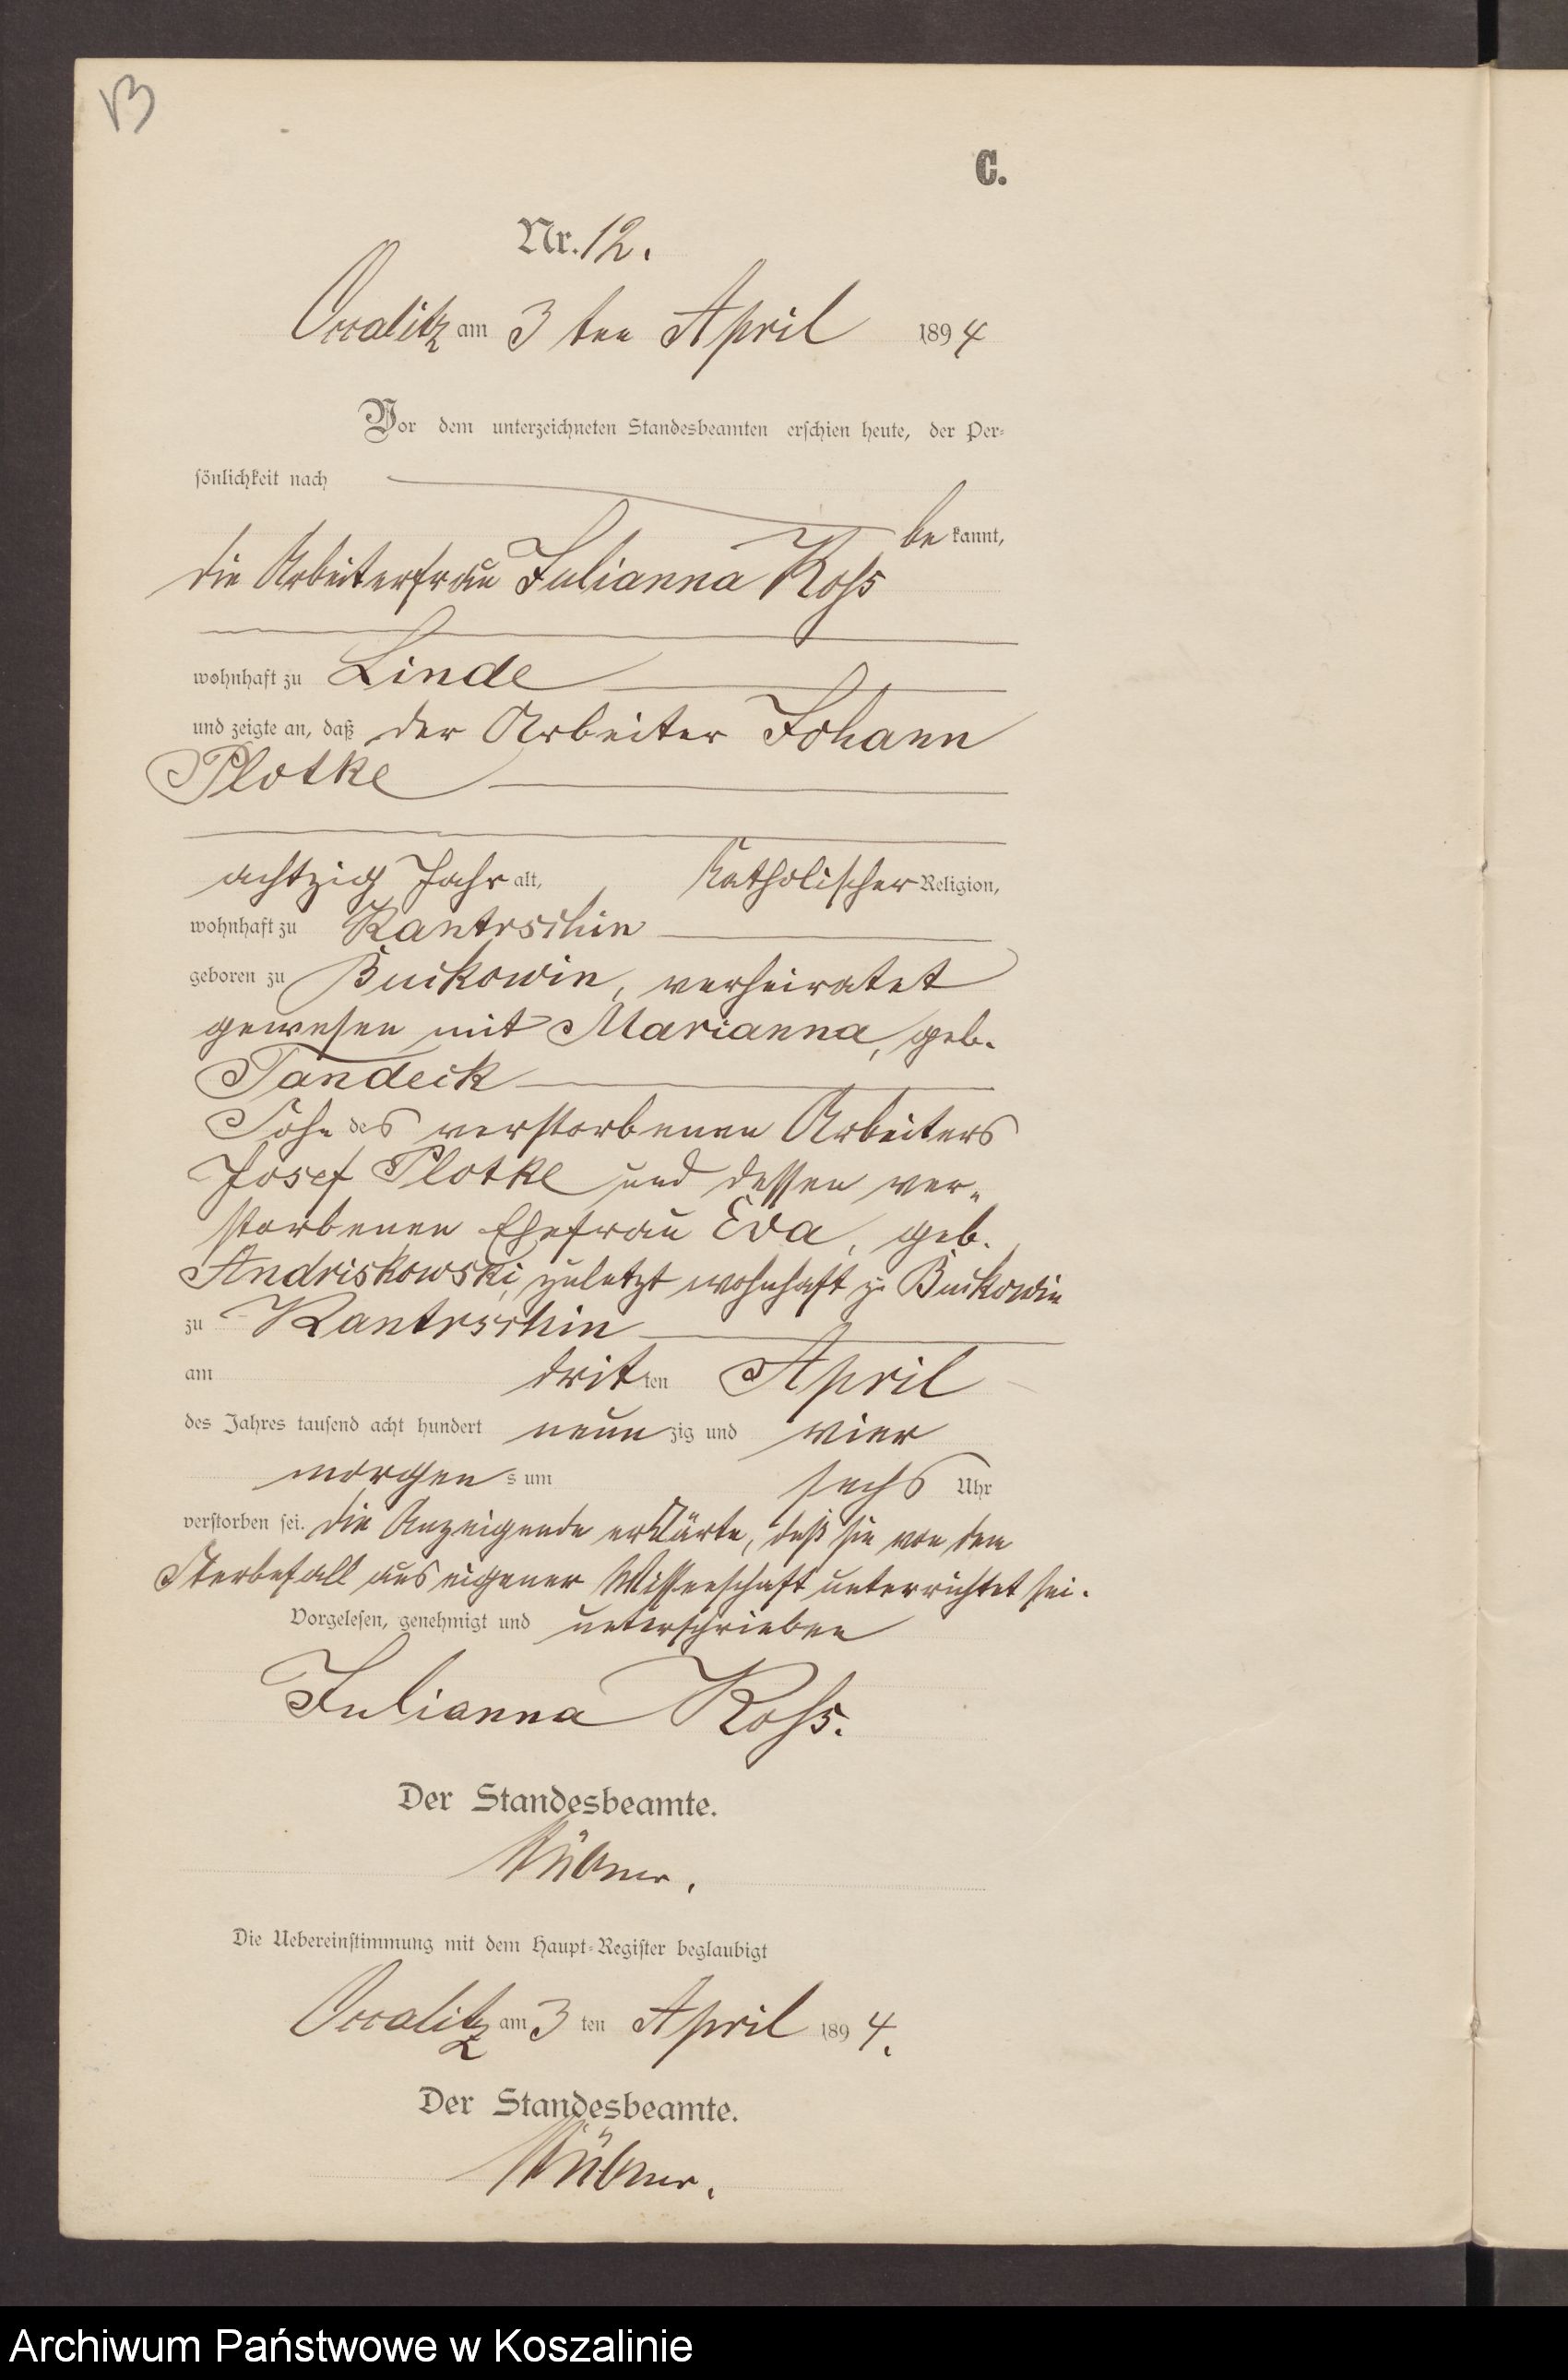 13
C.
Nr. 12.
Occalitz am 3 ten April 1894
Vor dem unterzeichneten Standesbeamten erschien heute, der Per-
sönlichkeit nach
be kannt,
die Arbeiterfrau Julianna Koss
wohnhaft zu Linde
und zeigte an, daß der Arbeiter Johann
Plotke
achtzig Jahr alt, Katholischer Religion,
wohnhaft zu Kantrschin
geboren zu Buckowin, verheiratet
gewesen mit Marianna, geb.
Tandeck
Sohn des verstorbenen Arbeiters
Josef Plotke und dessen ver-
storbenen Ehefrau Eva, geb.
Andriskowski, zuletzt wohnhaft zu Buckowin
zu Kantrschin
am dritten April
des Jahres tausend acht hundert neunzig und vier
morgens um sechs Uhr
verstorben sei. die Anzeigende erklärte, daß sie von dem
Sterbefall aus eigener Wissenschaft unterrichtet sei.
Vorgelesen, genehmigt und unterschrieben
Julianna Koss.
Der Standesbeamte.
Die Uebereinstimmung mit dem Haupt-Register beglaubigt
Occalitz am 3 ten April 1894.
Der Standesbeamte.
Archiwum Państwowe w Koszalinie